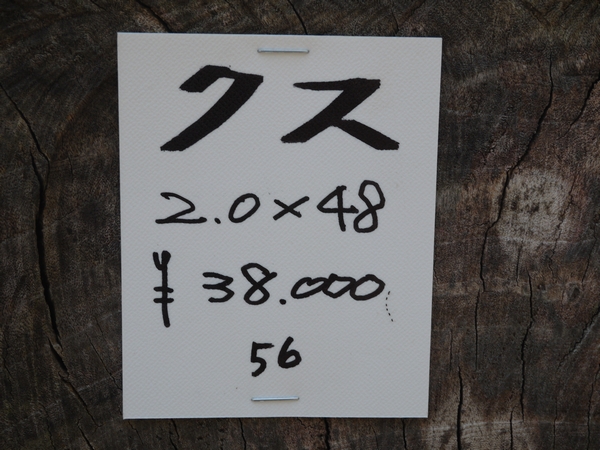 クス
2.0×48
¥38.000
56